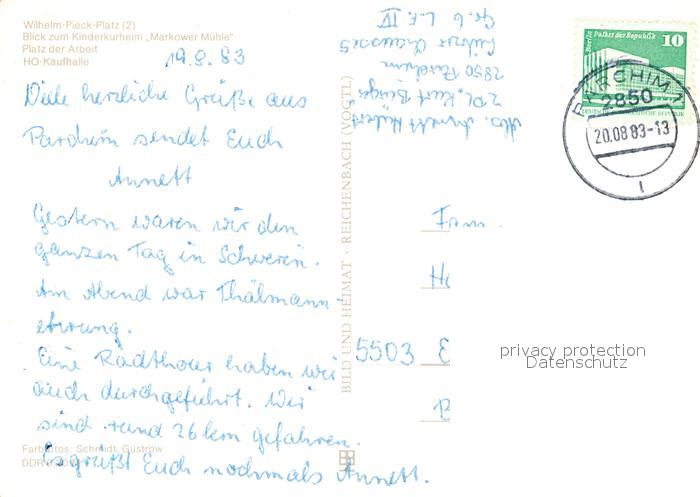 Wilhelm-Pieck-Platz (2)
Blick zum Kinderkurheim „Markower Mühle"
Platz der Arbeit
HO-Kaufhalle
19.8.83
Viele herzliche Grüße aus
Parchim sendet Euch
Annett
Gestern waren wir den
ganzen Tag in Schwerin.
Am Abend war Thälmann-
ehrung.
Eine Radthour haben wir
auch durchgeführt. Wir
sind rund 26 km gefahren.
Es grüßt Euch nochmals Annett.
Farbfotos: Schmidt, Güstrow
DDR
BILD UND HEIMAT · REICHENBACH (VOGTL)
Abs. Annett
ZPL „Kurt Bürger"
2850 Parchim
Gr. 6 L.F. IV
Berlin Palast der Republik
10
DEUTSCHE DEMOKRATISCHE REPUBLIK
PARCHIM 1
2850
20.08.83-13
Fam.
5503 E
privacy protection
Datenschutz